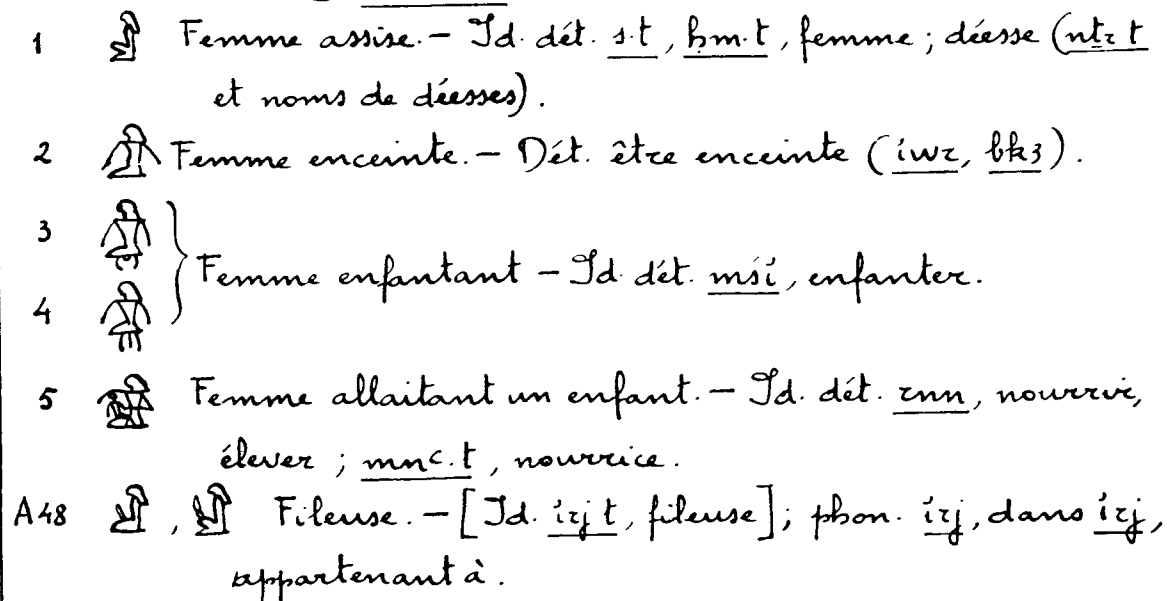 1 Femme assise. – Id. dét. s.t, ḥm.t, femme ; déesse (nṯr t
et noms de déesses).
2 Femme enceinte. – Dét. être enceinte (iwr, bkꜣ).
3
Femme enfantant – Id. dét. mśi, enfanter.
4
5 Femme allaitant un enfant. – Id. dét. rnn, nourrir,
élever ; mnꜥ.t, nourrice.
A48 , Fileuse. – [Id. irj t, fileuse] ; phon. irj, dans irj,
appartenant à.